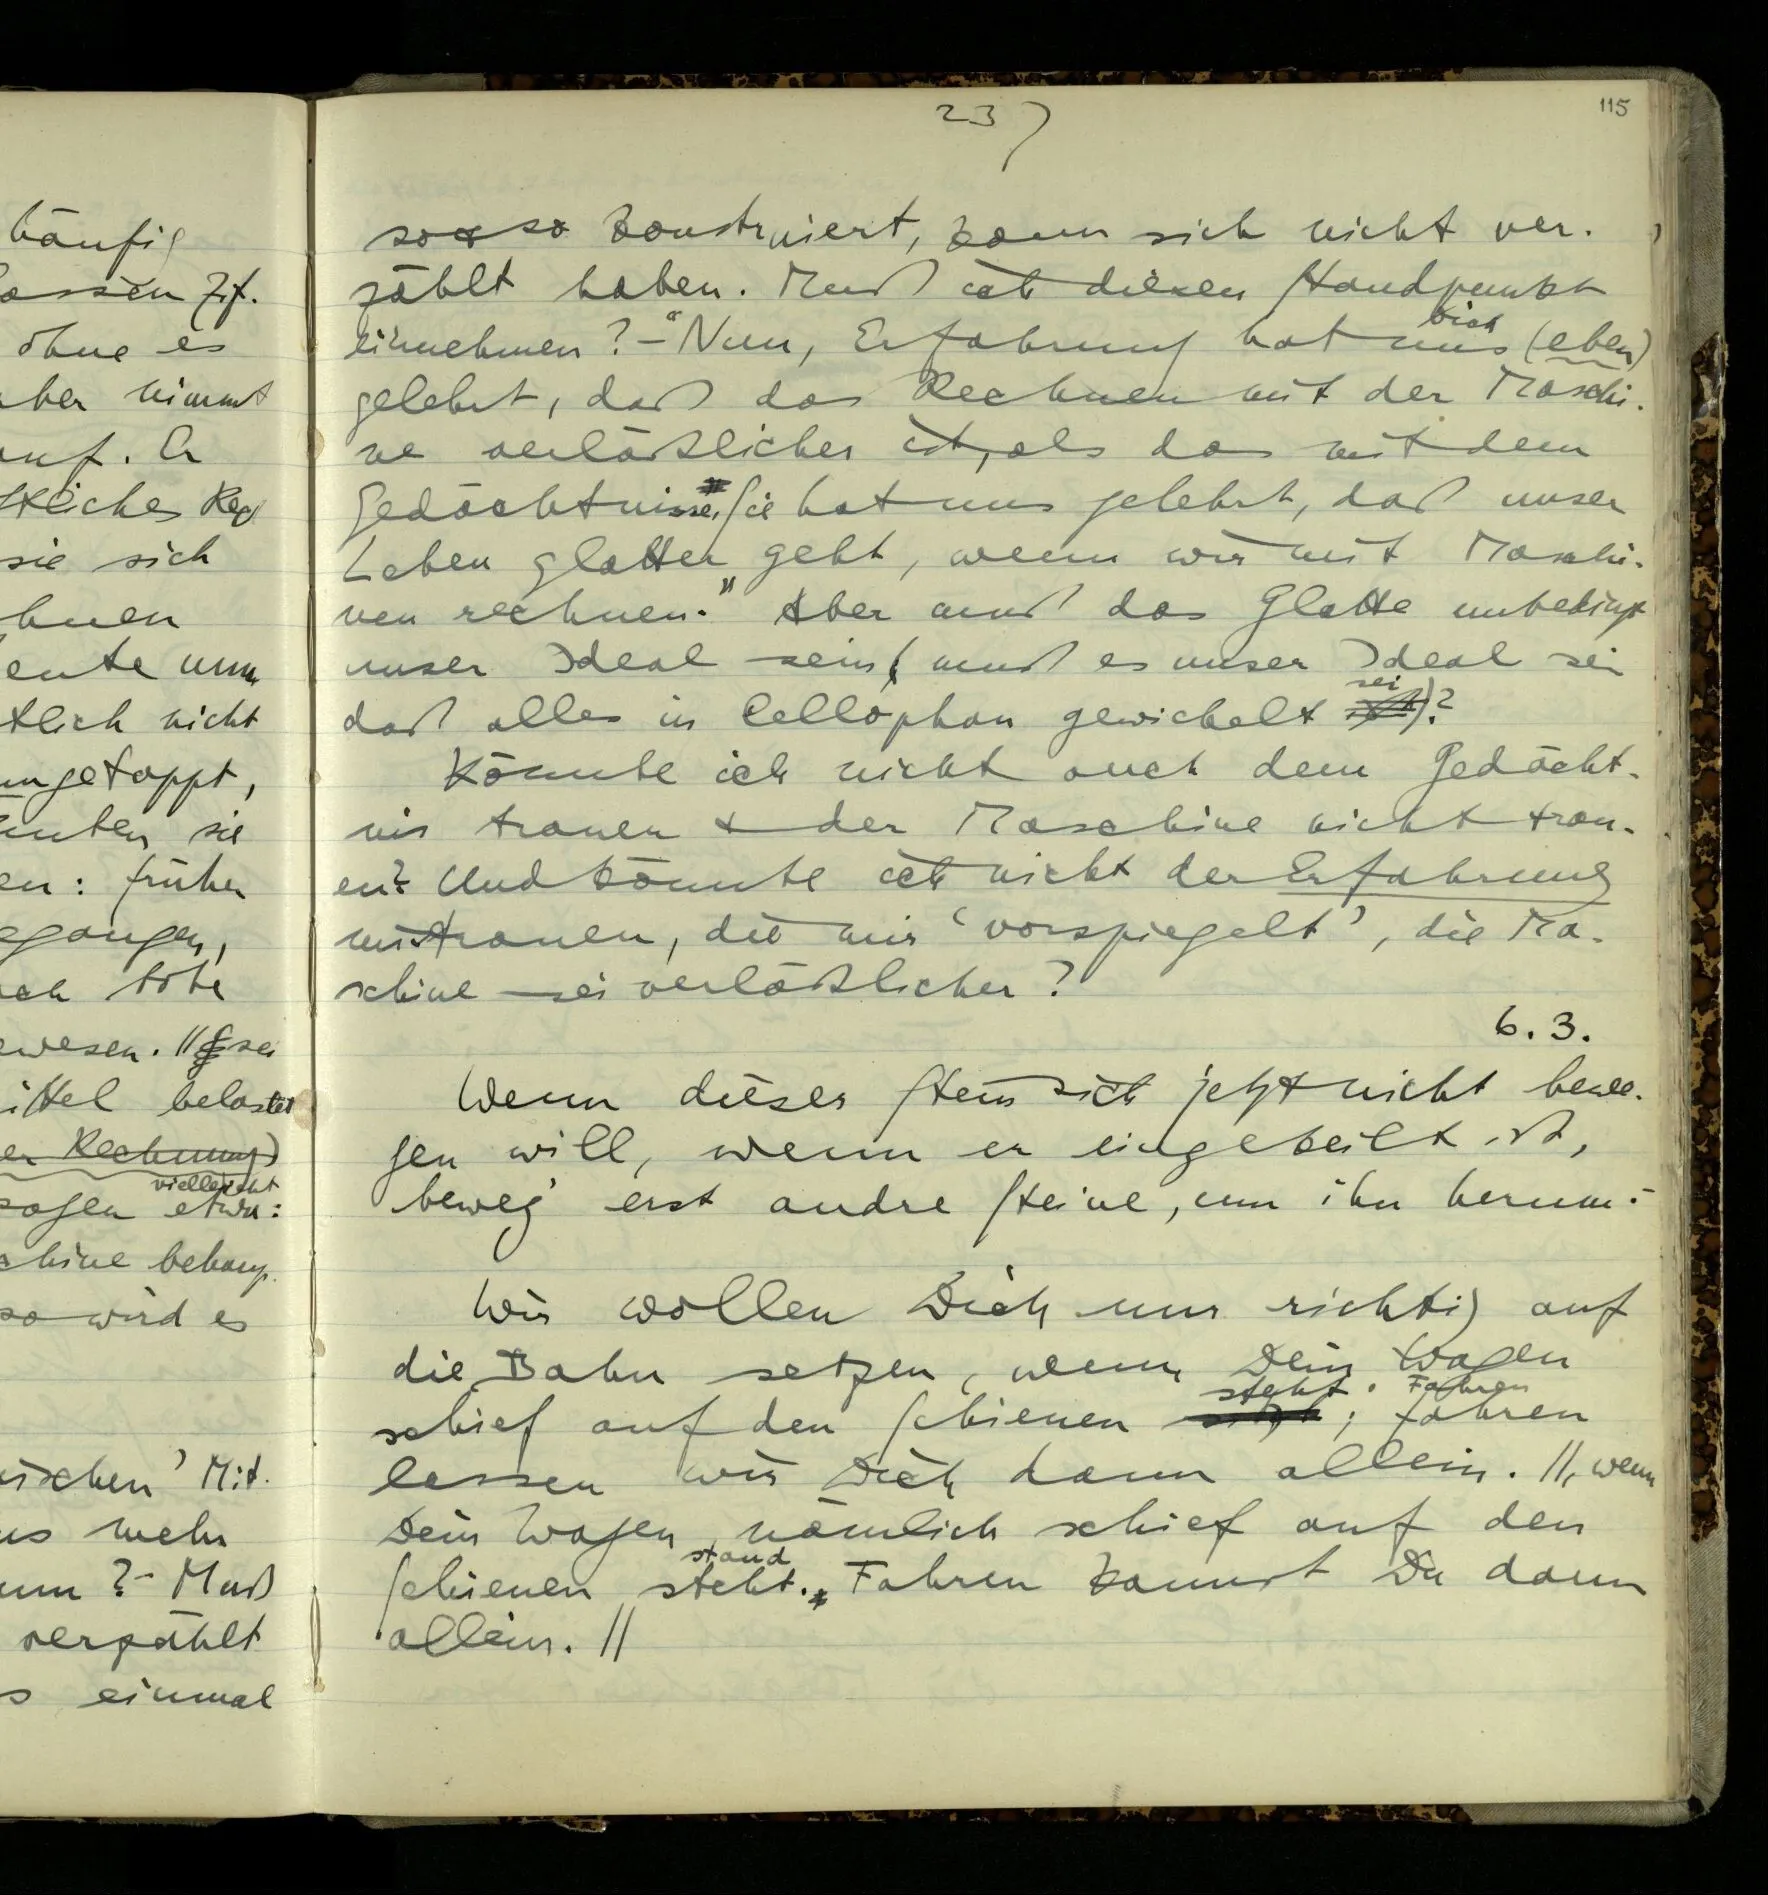 häufig
lassen Zif.
ohne es
aber nimmt
auf. Er
sie sich
hnen
tlich nicht
ungetappt,
en: früher
egangen,
wesen. // sei
ittel belastet
er Rechnung)
vielleicht
sagen etwa:
chine behaup.
so wird es
ischen' Mit.
us mehr
um? – Muß
verzählt
s einmal
115
237
so & so konstruiert, kann sich nicht ver-
zählt haben. Muß ich diesen Standpunkt
einnehmen? – "Nun, Erfahrung hat uns (eben)
gelehrt, daß das Rechnen mit der Maschi-
ne verläßlicher ist, als das mit dem
Gedächtnisse. Sie hat uns gelehrt, daß unser
Leben glatter geht, wenn wir mit Maschi-
nen rechnen." Aber muß das Glatte unbedingt
unser Ideal sein (muß es unser Ideal sein
sei
daß alles in Cellophan gewickelt ist)?
Könnte ich nicht auch dem Gedächt-
nis trauen & der Maschine nicht trau-
en? Und könnte ich nicht der Erfahrung
mißtrauen, die mir 'vorspiegelt', die Ma-
schine sei verläßlicher?
6.3.
Wenn dieser Stein sich jetzt nicht bewe-
gen will, wenn er eingekeilt ist,
beweg' erst andre Steine, um ihn herum. –
Wir wollen Dich nur richtig auf
die Bahn setzen, wenn Dein Wagen
steht. Fahren
schief auf den Schienen sitzt; fahren
lassen wir Dich dann allein. //, wenn
Dein Wagen nämlich schief auf den
stand
Schienen steht. Fahren kannst Du dann
allein. //